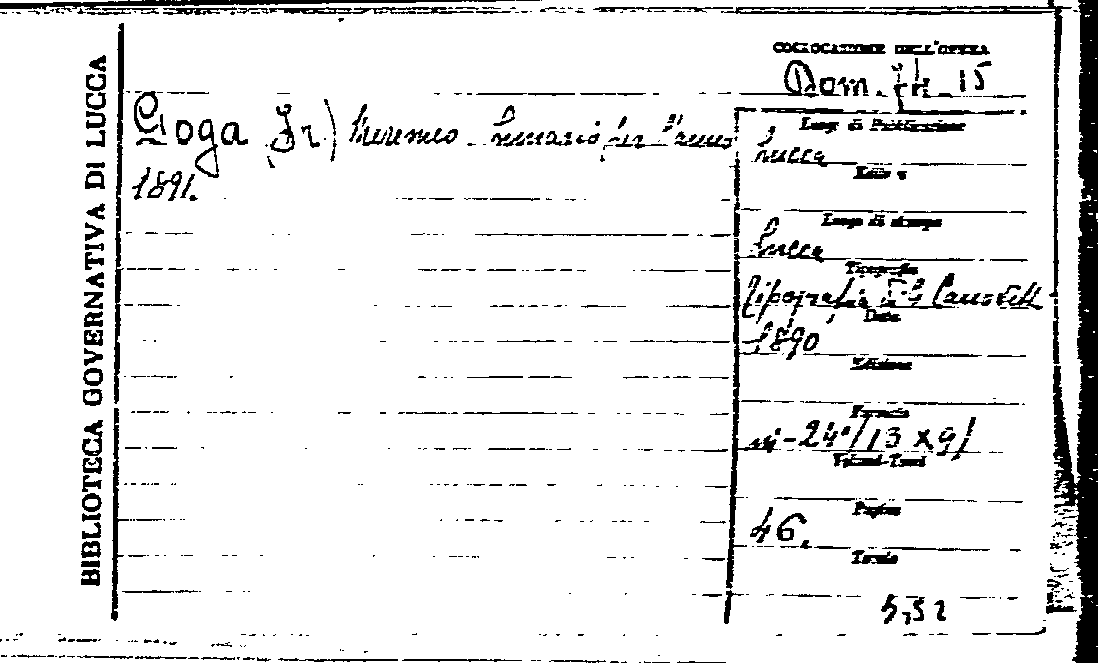 BIBLIOTECA GOVERNATIVA DI LUCCA
COLLOCAZIONE DELL'OPERA
Dom. 15
Goga Fr) Lunario per l'anno
1891.
Luogo di Pubblicazione
Lucca
Luogo di stampa
Lucca
Tipografia
Tipografia Canovetti
Data
1890
Edizione
Formato
in-24°/13 x 9/
Volumi-Tomi
Pagine
46.
Tavole
5,52